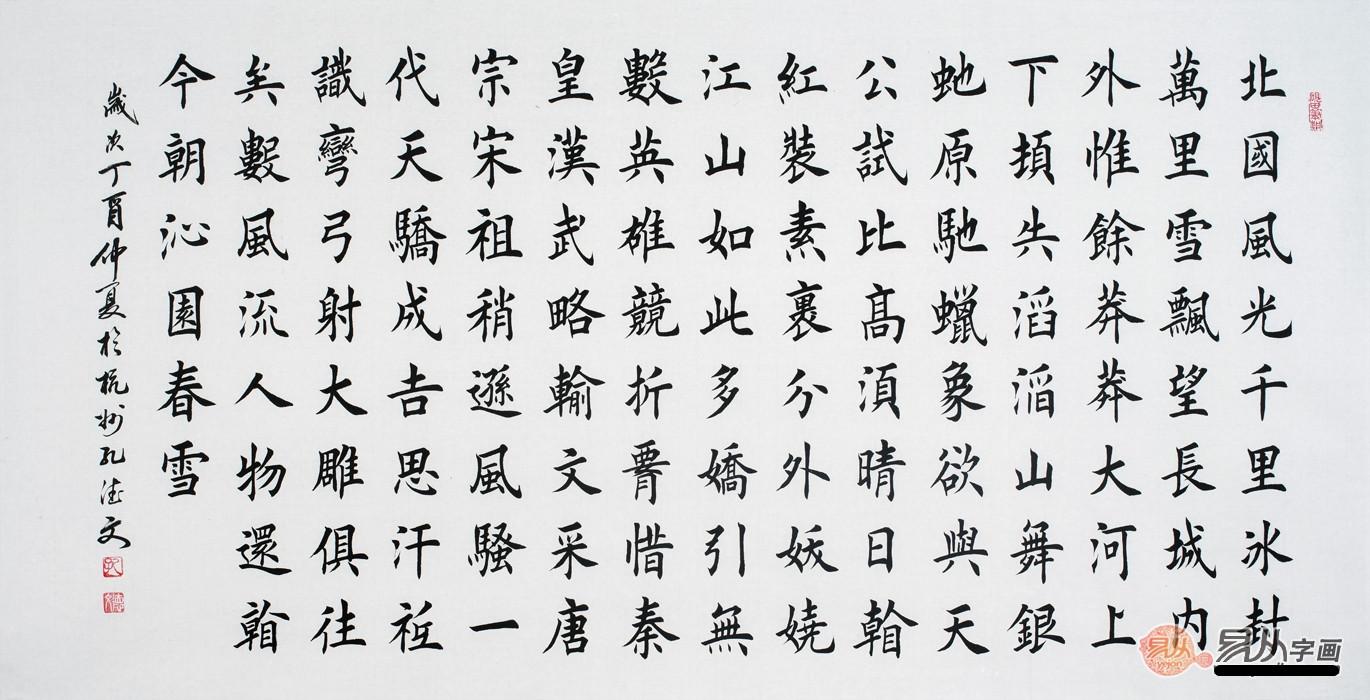 北國風光千里冰封
萬里雪飄望長城内
外惟餘莽莽大河上
下頓失滔滔山舞銀
虵原馳蠟象欲與天
公試比高須晴日看
紅裝素裹分外妖嬈
江山如此多嬌引無
數英雄競折腰惜秦
皇漢武略輸文采唐
宗宋祖稍遜風騷一
代天驕成吉思汗祗
識彎弓射大雕俱往
矣數風流人物還看
今朝沁園春雪
歲次丁酉仲夏於杭州孔德文
易从字画